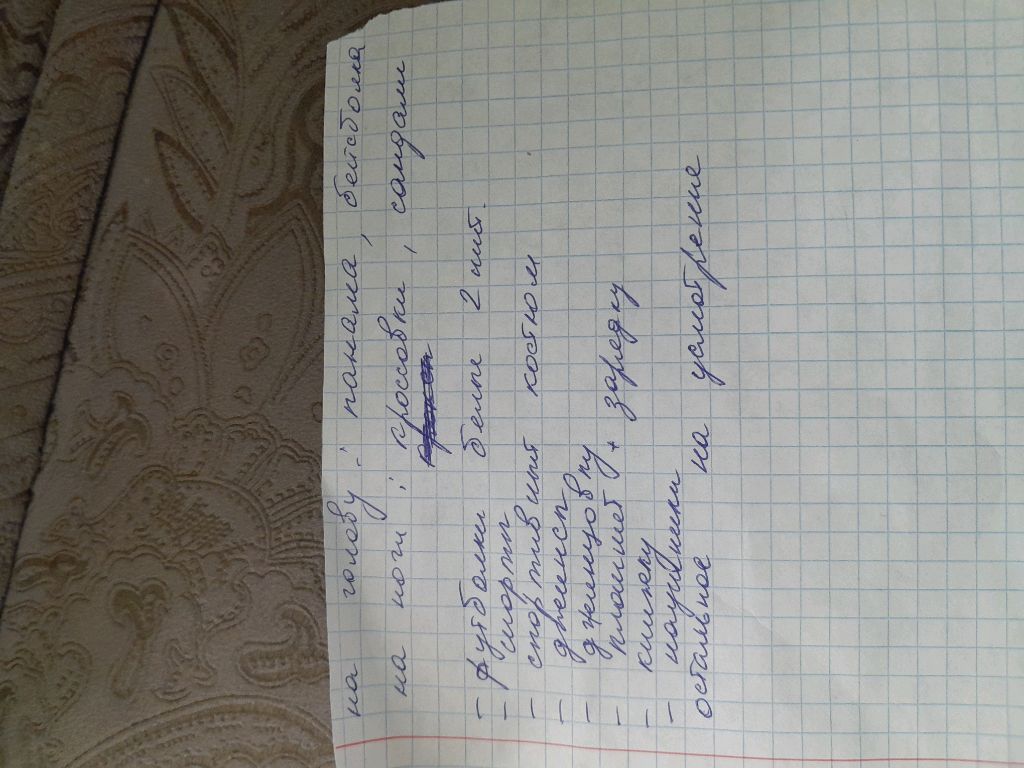 на голову: панама, бейсболка
на ноги: кроссовки, сандали
- футболки белые 2 шт.
- шорты
- спортивный костюм
- джинсы
- джинсовку
- планшет + зарядку
- книжку
- наушники
остальное на усмотрение